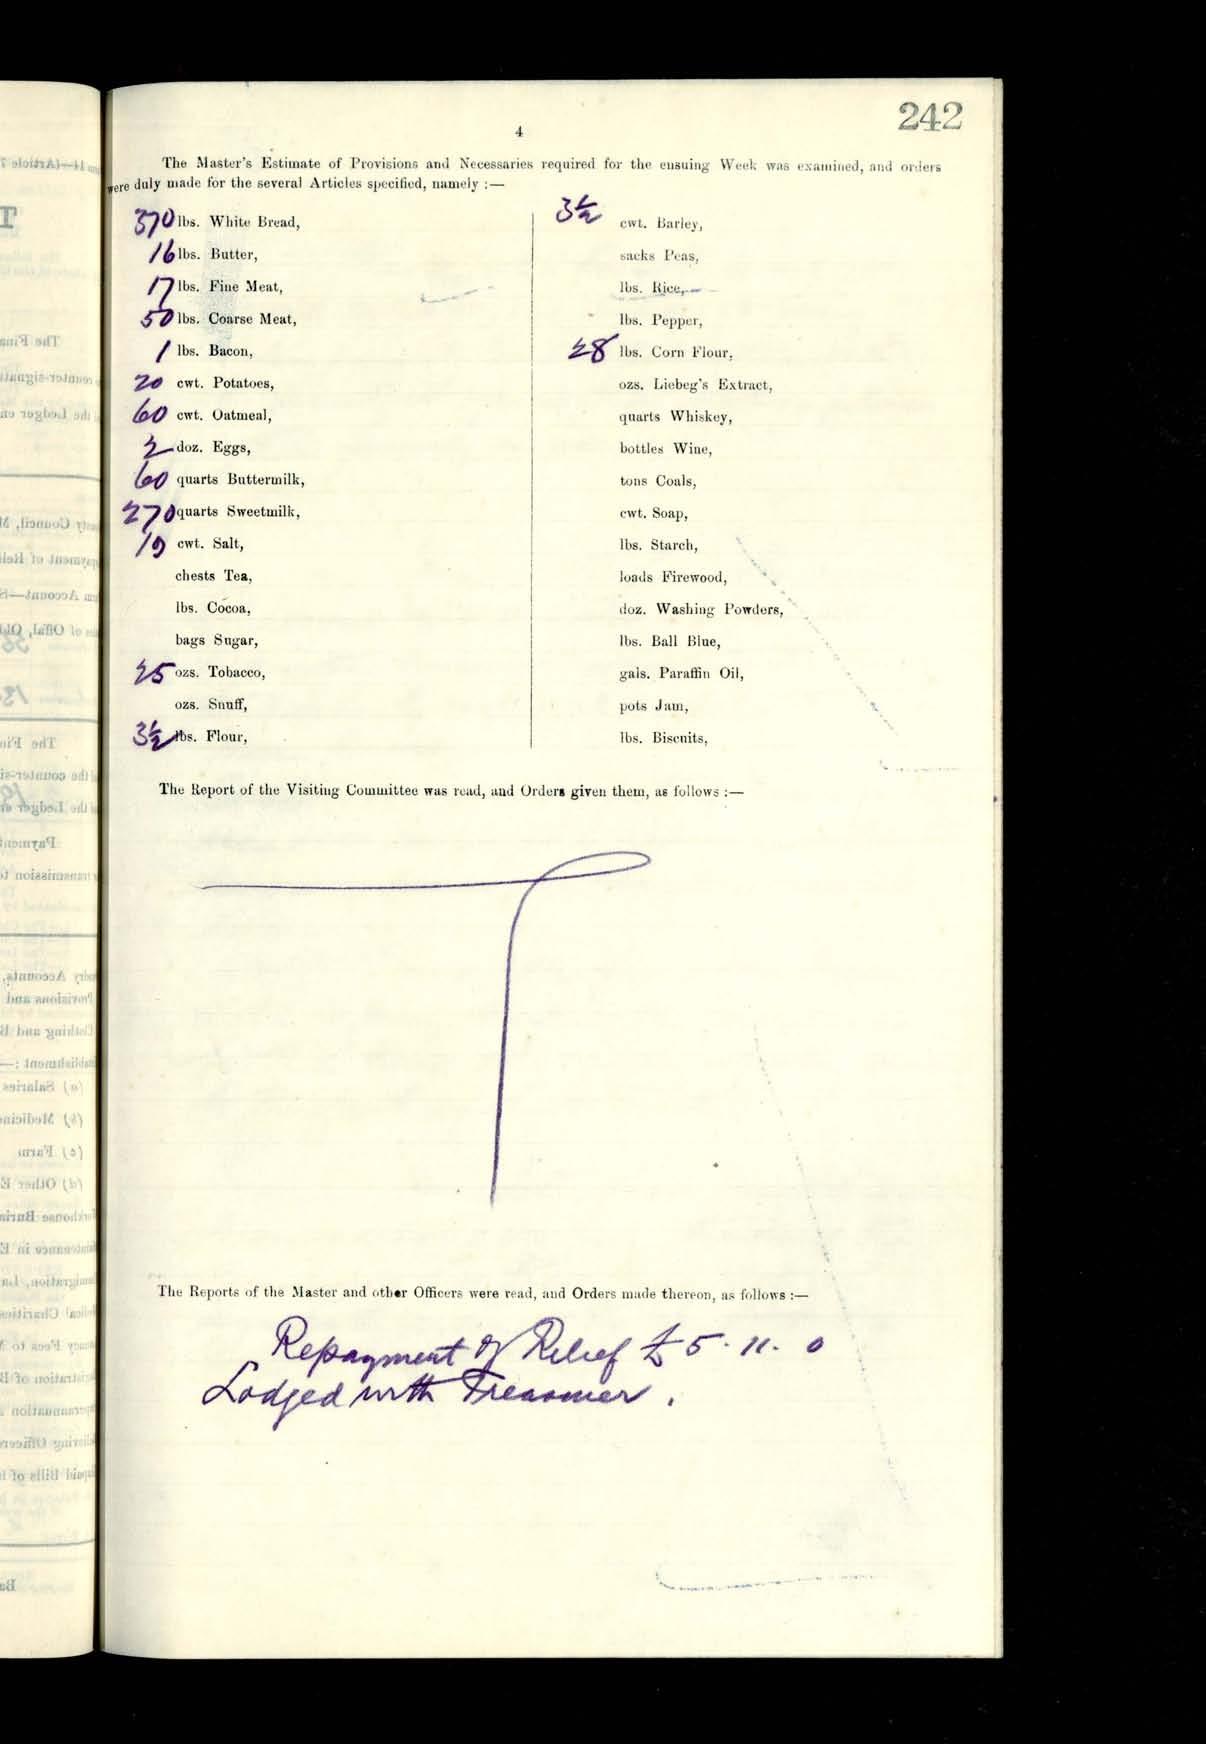 242
4
The Master's Estimate of Provisions and Necessaries required for the ensuing Week was examined, and orders
were duly made for the several Articles specified, namely :—
370 lbs. White Bread,
16 lbs. Butter,
17 lbs. Fine Meat,
50 lbs. Coarse Meat,
1 lbs. Bacon,
20 cwt. Potatoes,
60 cwt. Oatmeal,
2 doz. Eggs,
60 quarts Buttermilk,
270 quarts Sweetmilk,
19 cwt. Salt,
chests Tea,
lbs. Cocoa,
bags Sugar,
25 ozs. Tobacco,
ozs. Snuff,
3½ lbs. Flour,
3½ cwt. Barley,
sacks Peas,
lbs. Rice,
lbs. Pepper,
28 lbs. Corn Flour,
ozs. Liebeg's Extract,
quarts Whiskey,
bottles Wine,
tons Coals,
cwt. Soap,
lbs. Starch,
loads Firewood,
doz. Washing Powders,
lbs. Ball Blue,
gals. Paraffin Oil,
pots Jam,
lbs. Biscuits,
The Report of the Visiting Committee was read, and Orders given them, as follows :—
The Reports of the Master and other Officers were read, and Orders made thereon, as follows :—
Repayment of Relief £5. 11. 0
Lodged with Treasurer.